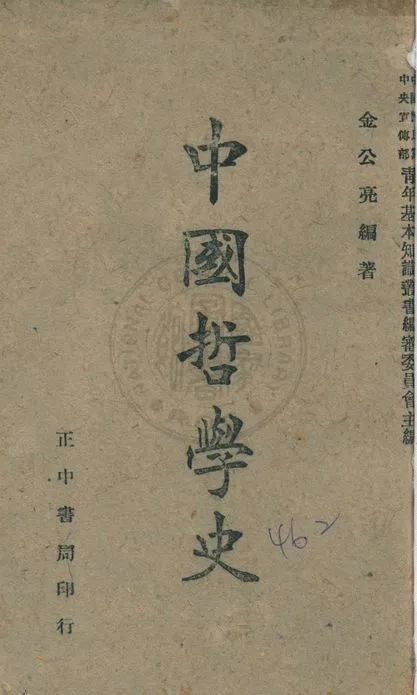 中央宣傳部
青年基本知識叢書編審委員會主編
金公亮編著
中國哲學史
正中書局印行
462